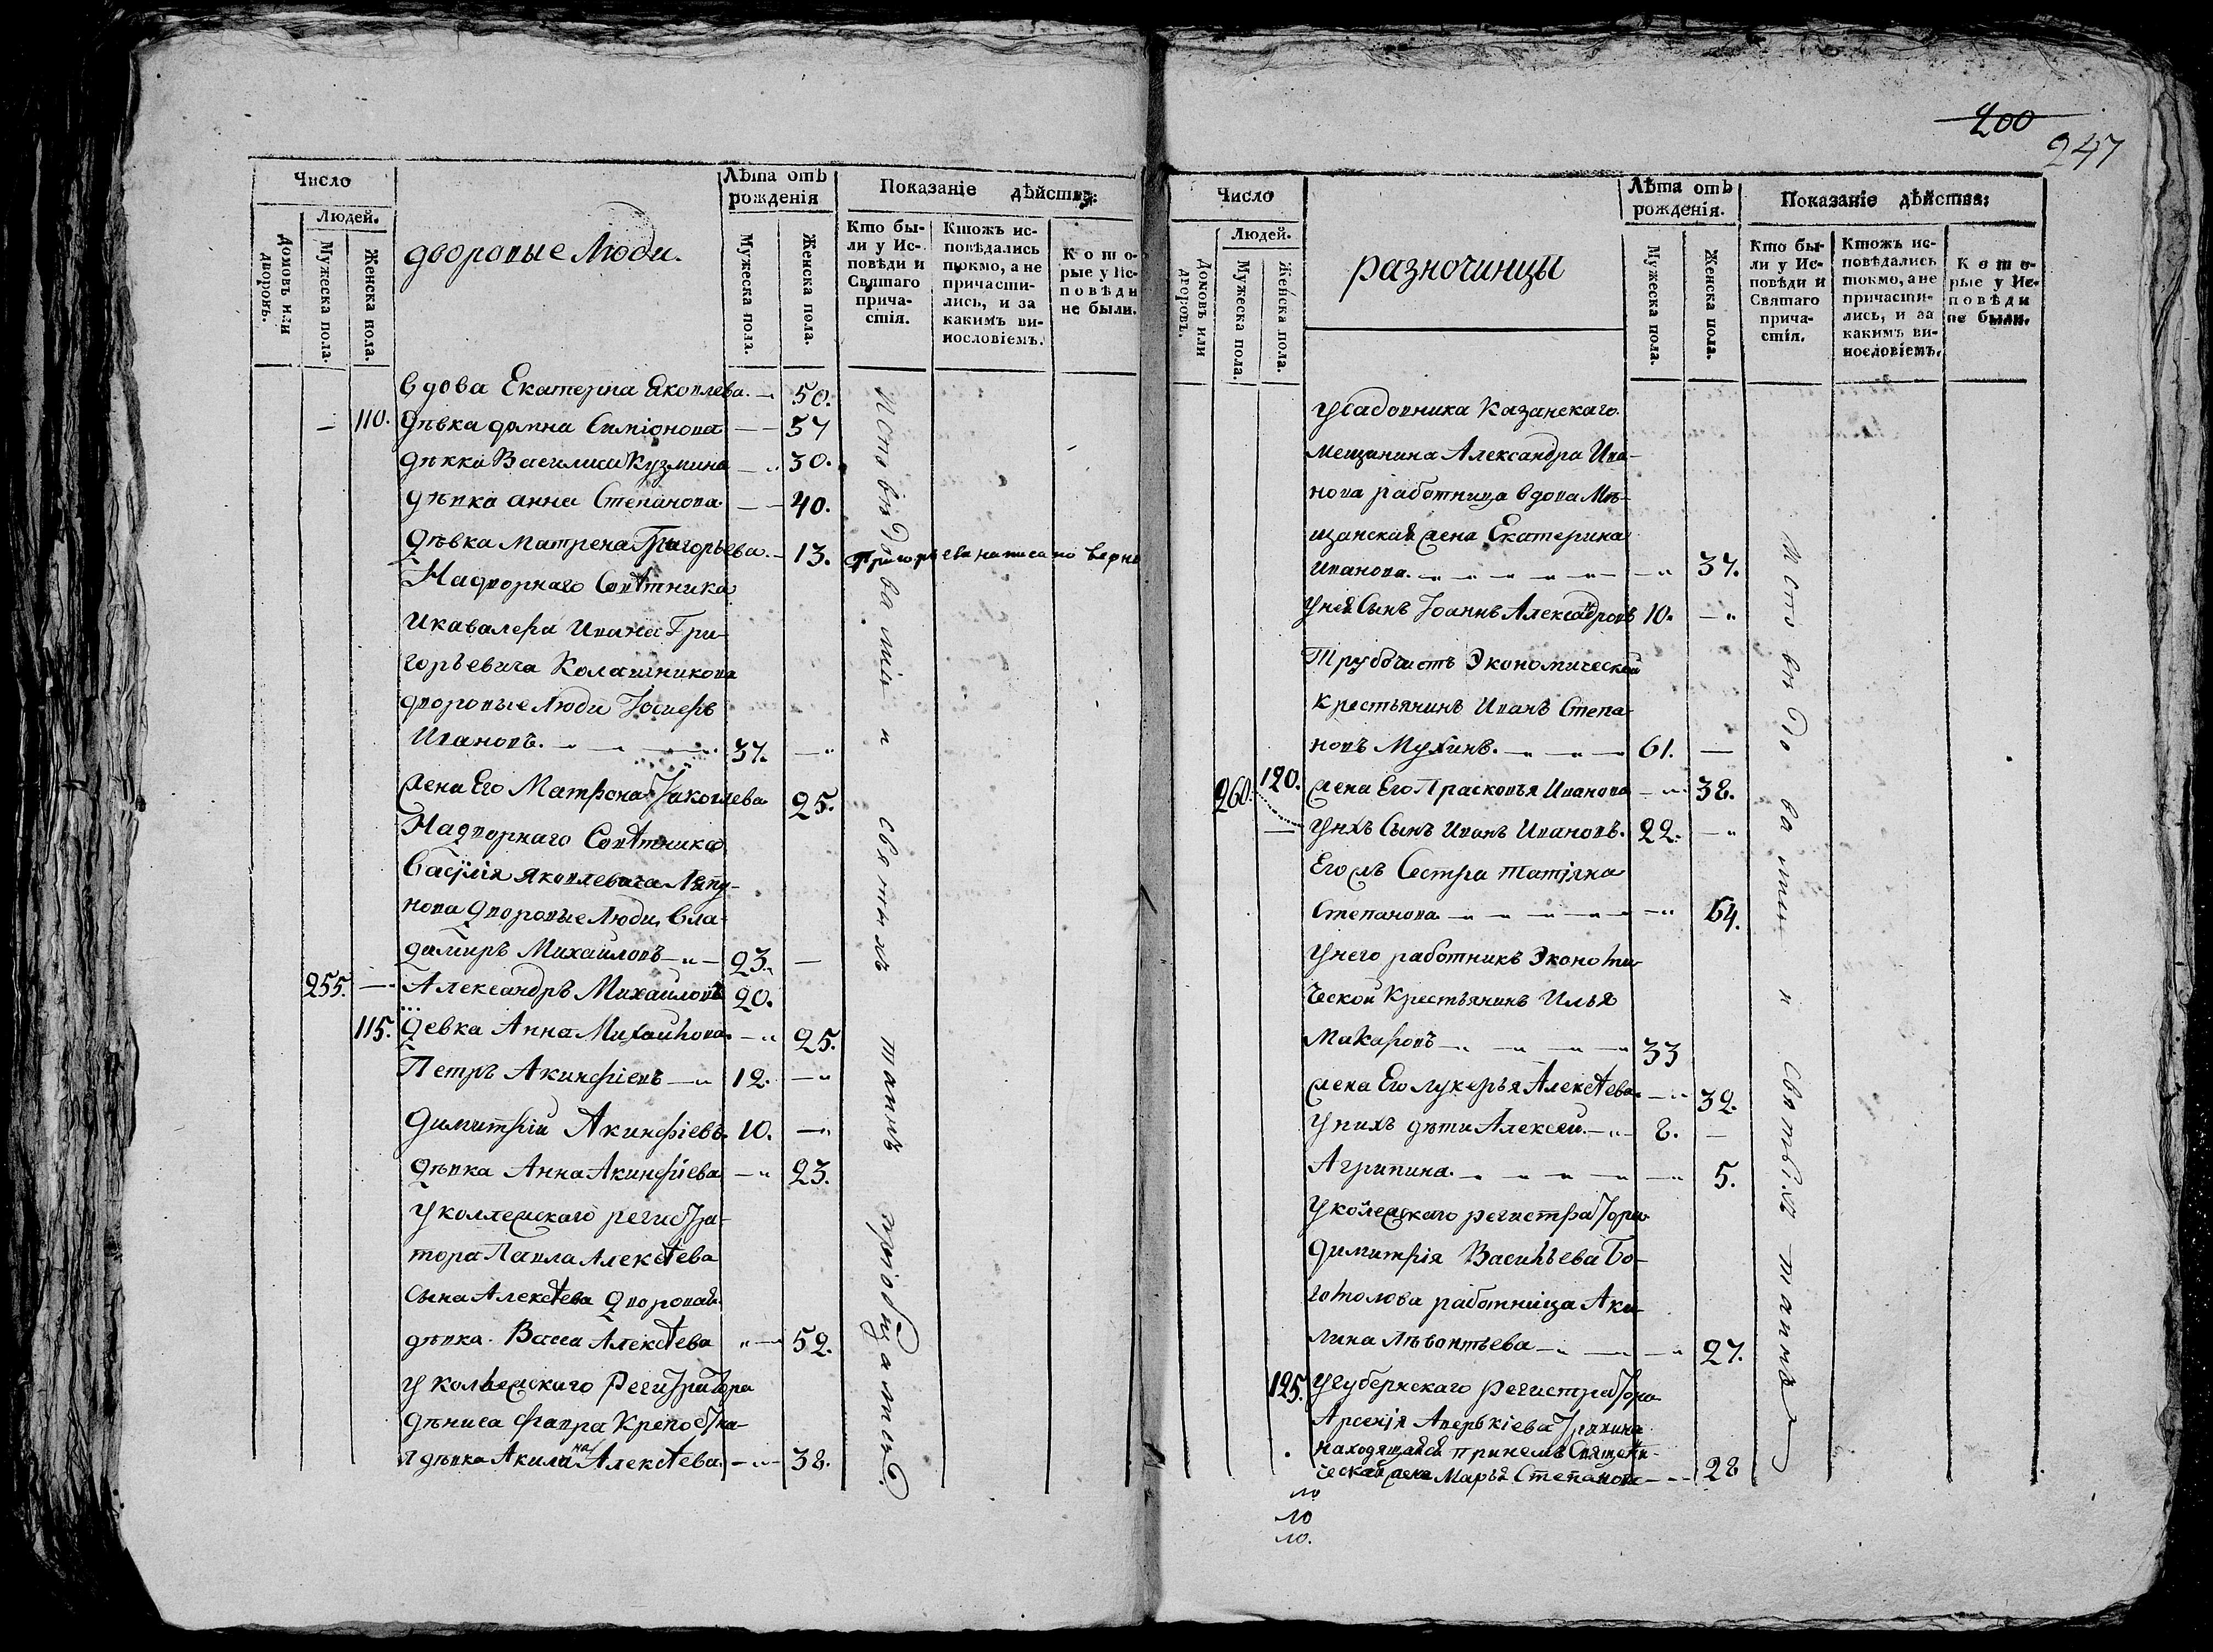 Число
Людей.
Домовъ или дворовъ.
Мужеска пола.
Женска пола.
дворовые Люди.
Лѣта отъ рожденія
Мужеска пола.
Женска пола.
Показаніе дѣйства:
Кто бы-
ли у Ис-
повѣди и
Святаго
прича-
стія.
Ктожъ ис-
повѣдались
токмо, а не
причасти-
лись, и за
какимъ ви-
нословіемъ.
Кото-
рые у Ис-
повѣди
не были.
вдова Екатерина Яковлева. — 50.
— 110. Дѣвка домна Симіонова — 57
дѣвка Василиса Кузмина — 30.
дѣвка анна Степанова — 40.
Дѣвка Матрена Григорьева. — 13. Григорьева написано верно
Надворнаго Совѣтника
Икавалера Ивана Гри-
горьевича Колашникова
дворовые Люди Іосифъ
Ивановъ. — 37. —
Жена Его Матрона Іаковлева 25.
Надворнаго Совѣтника
Васілія Яковлевича Ляпу-
нова Дворовые Люди, Вла-
димиръ Михаиловъ — 23. —
255. — Александръ Михаиловъ 20.
115. Девка Анна Михаилова. — 25.
Петръ Акинфіевъ — 12. —
Димитрій Акинфіевъ. 10. —
Дѣвка Анна Акинфіева — 23.
У коллежскаго регистра-
тора Павла Алексѣева
Сына Алексѣева Дворовая
дѣвка Васса Алексѣева — 52.
У кольежскаго Регистратора
дѣниса Фавра Крепостна-
я дѣвка Акилина Алексѣева. — 38.
Исповѣдовались и святыхъ таинъ пріобщались
200
247
Число
Людей.
Домовъ или дворовъ.
Мужеска пола.
Женска пола.
разночинцы
Лѣта отъ рожденія.
Мужеска пола.
Женска пола.
Показаніе дѣйства:
Кто бы-
ли у Ис-
повѣди и
Святаго
прича-
стія.
Ктожъ ис-
повѣдались
токмо, а не
причасти-
лись, и за
какимъ ви-
нословіемъ.
Кото-
рые у Ис-
повѣди
не были.
У садовника Казанскаго
мещанина Александра Ива-
нова работница вдова Мѣ-
щанская жена Екатерина
Иванова. — 37.
У нея Сынъ Іоаннъ Александровъ 10. —
Трубочистъ Экономической
Крестьянинъ Иванъ Степа-
новъ Мухинъ. — 61. —
120. жена Его Прасковья Иванова — 38.
260. — У нихъ Сынъ Иванъ Ивановъ. 22. —
Его жъ Сестра Татіяна
Степанова — 64.
У него работникъ Экономи-
ческой Крестьянинъ Илья
Макаровъ — 33
жена Его лукерья Алексѣева. — 32.
У нихъ дѣти Алексѣй. — 8. —
Агрипина. — 5.
У колежскаго регистратора
Димитрія Васильева Бо-
гомолова работница Аку-
лина Лѣвонтьева — 27.
125. У губернскаго регистратора
Арсенія Аверькіева
находящаяся при немъ Священи-
ческая жена Марья Степанова — 28
Исповѣдовались и святыхъ таинъ